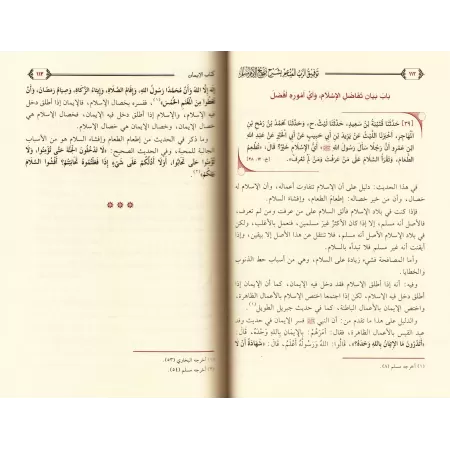 ١١٢
توفيق الرب المنعم بشرح صحيح الإمام مسلم
بَابُ بَيَانِ تَفَاضُلِ الإِسْلَامِ، وَأَيِّ أُمُورِهِ أَفْضَلُ
[٣٩] حَدَّثَنَا قُتَيْبَةُ بْنُ سَعِيدٍ، حَدَّثَنَا لَيْثٌ. ح، وَحَدَّثَنَا مُحَمَّدُ بْنُ رُمْحِ بْنِ
الْمُهَاجِرِ، أَخْبَرَنَا اللَّيْثُ عَنْ يَزِيدَ بْنِ أَبِي حَبِيبٍ عَنْ أَبِي الْخَيْرِ عَنْ عَبْدِ اللهِ
ابْنِ عَمْرٍو أَنَّ رَجُلًا سَأَلَ رَسُولَ اللهِ ﷺ: أَيُّ الإِسْلَامِ خَيْرٌ؟ قَالَ: «تُطْعِمُ
الطَّعَامَ، وَتَقْرَأُ السَّلَامَ عَلَى مَنْ عَرَفْتَ وَمَنْ لَمْ تَعْرِفْ».
في هذا الحديث: دليل على أن الإسلام تتفاوت أعماله، وأن الإسلام له
خصال، وأن من خير خصاله: إطعام الطعام، وإفشاء السلام.
فإذا كنت في بلاد الإسلام فألق السلام على من عرفت ومن لم تعرف،
فالأصل أنه مسلم، إلا إذا كان الأكثر غير مسلمين، فتعمل بالأغلب، ولكن
في بلاد الإسلام الأصل أنه مسلم، فلا تنتقل عن هذا الأصل إلا بيقين، وإذا
أيقنت أنه غير مسلم فلا تبدأه بالسلام.
وأما المصافحة فشيء زيادة على السلام، وهي من أسباب حط الذنوب
والخطايا.
وفيه: أنه إذا أطلق الإسلام فقد دخل فيه الإيمان، كما أن الإيمان إذا
أطلق دخل فيه الإسلام، لكن إذا اجتمعا اختص الإسلام بالأعمال الظاهرة،
واختص الإيمان بالأعمال الباطنة، كما في حديث جبريل الطويل(١).
والدليل على هذا ما تقدم من: أن النبي ﷺ فسر الإيمان في حديث وفد
عبد القيس بالأعمال الظاهرة، فقال: أَمَرَهُمْ بِالإِيمَانِ بِاللهِ وَحْدَهُ، قَالَ:
«أَتَدْرُونَ مَا الإِيمَانُ بِاللهِ وَحْدَهُ؟» قَالُوا: اللهُ وَرَسُولُهُ أَعْلَمُ، قَالَ: «شَهَادَةُ أَنْ لَا
(١) أخرجه مسلم (٨).
كتاب الإيمان
١١٣
إِلَهَ إِلَّا اللهُ وَأَنَّ مُحَمَّدًا رَسُولُ اللهِ، وَإِقَامُ الصَّلَاةِ، وَإِيتَاءُ الزَّكَاةِ، وَصِيَامُ رَمَضَانَ، وَأَنْ
تُعْطُوا مِنَ الْمَغْنَمِ الْخُمُسَ»(١)، ففسره بخصال الإسلام، فالإيمان إذا أطلق دخل
فيه الإسلام، والإسلام إذا أطلق دخل فيه الإيمان، فخصال الإسلام هي
خصال الإيمان، وخصال الإيمان هي خصال الإسلام.
وما ذكر في الحديث من إطعام الطعام وإفشاء السلام هو من الأسباب
الجالبة للمحبة، وفي الحديث الصحيح: «لَا تَدْخُلُونَ الْجَنَّةَ حَتَّى تُؤْمِنُوا، وَلَا
تُؤْمِنُوا حَتَّى تَحَابُّوا، أَوَلَا أَدُلُّكُمْ عَلَى شَيْءٍ إِذَا فَعَلْتُمُوهُ تَحَابَبْتُمْ؟ أَفْشُوا السَّلَامَ
بَيْنَكُمْ»(٢).
(١) أخرجه البخاري (٥٣).
(٢) أخرجه مسلم (٥٤).